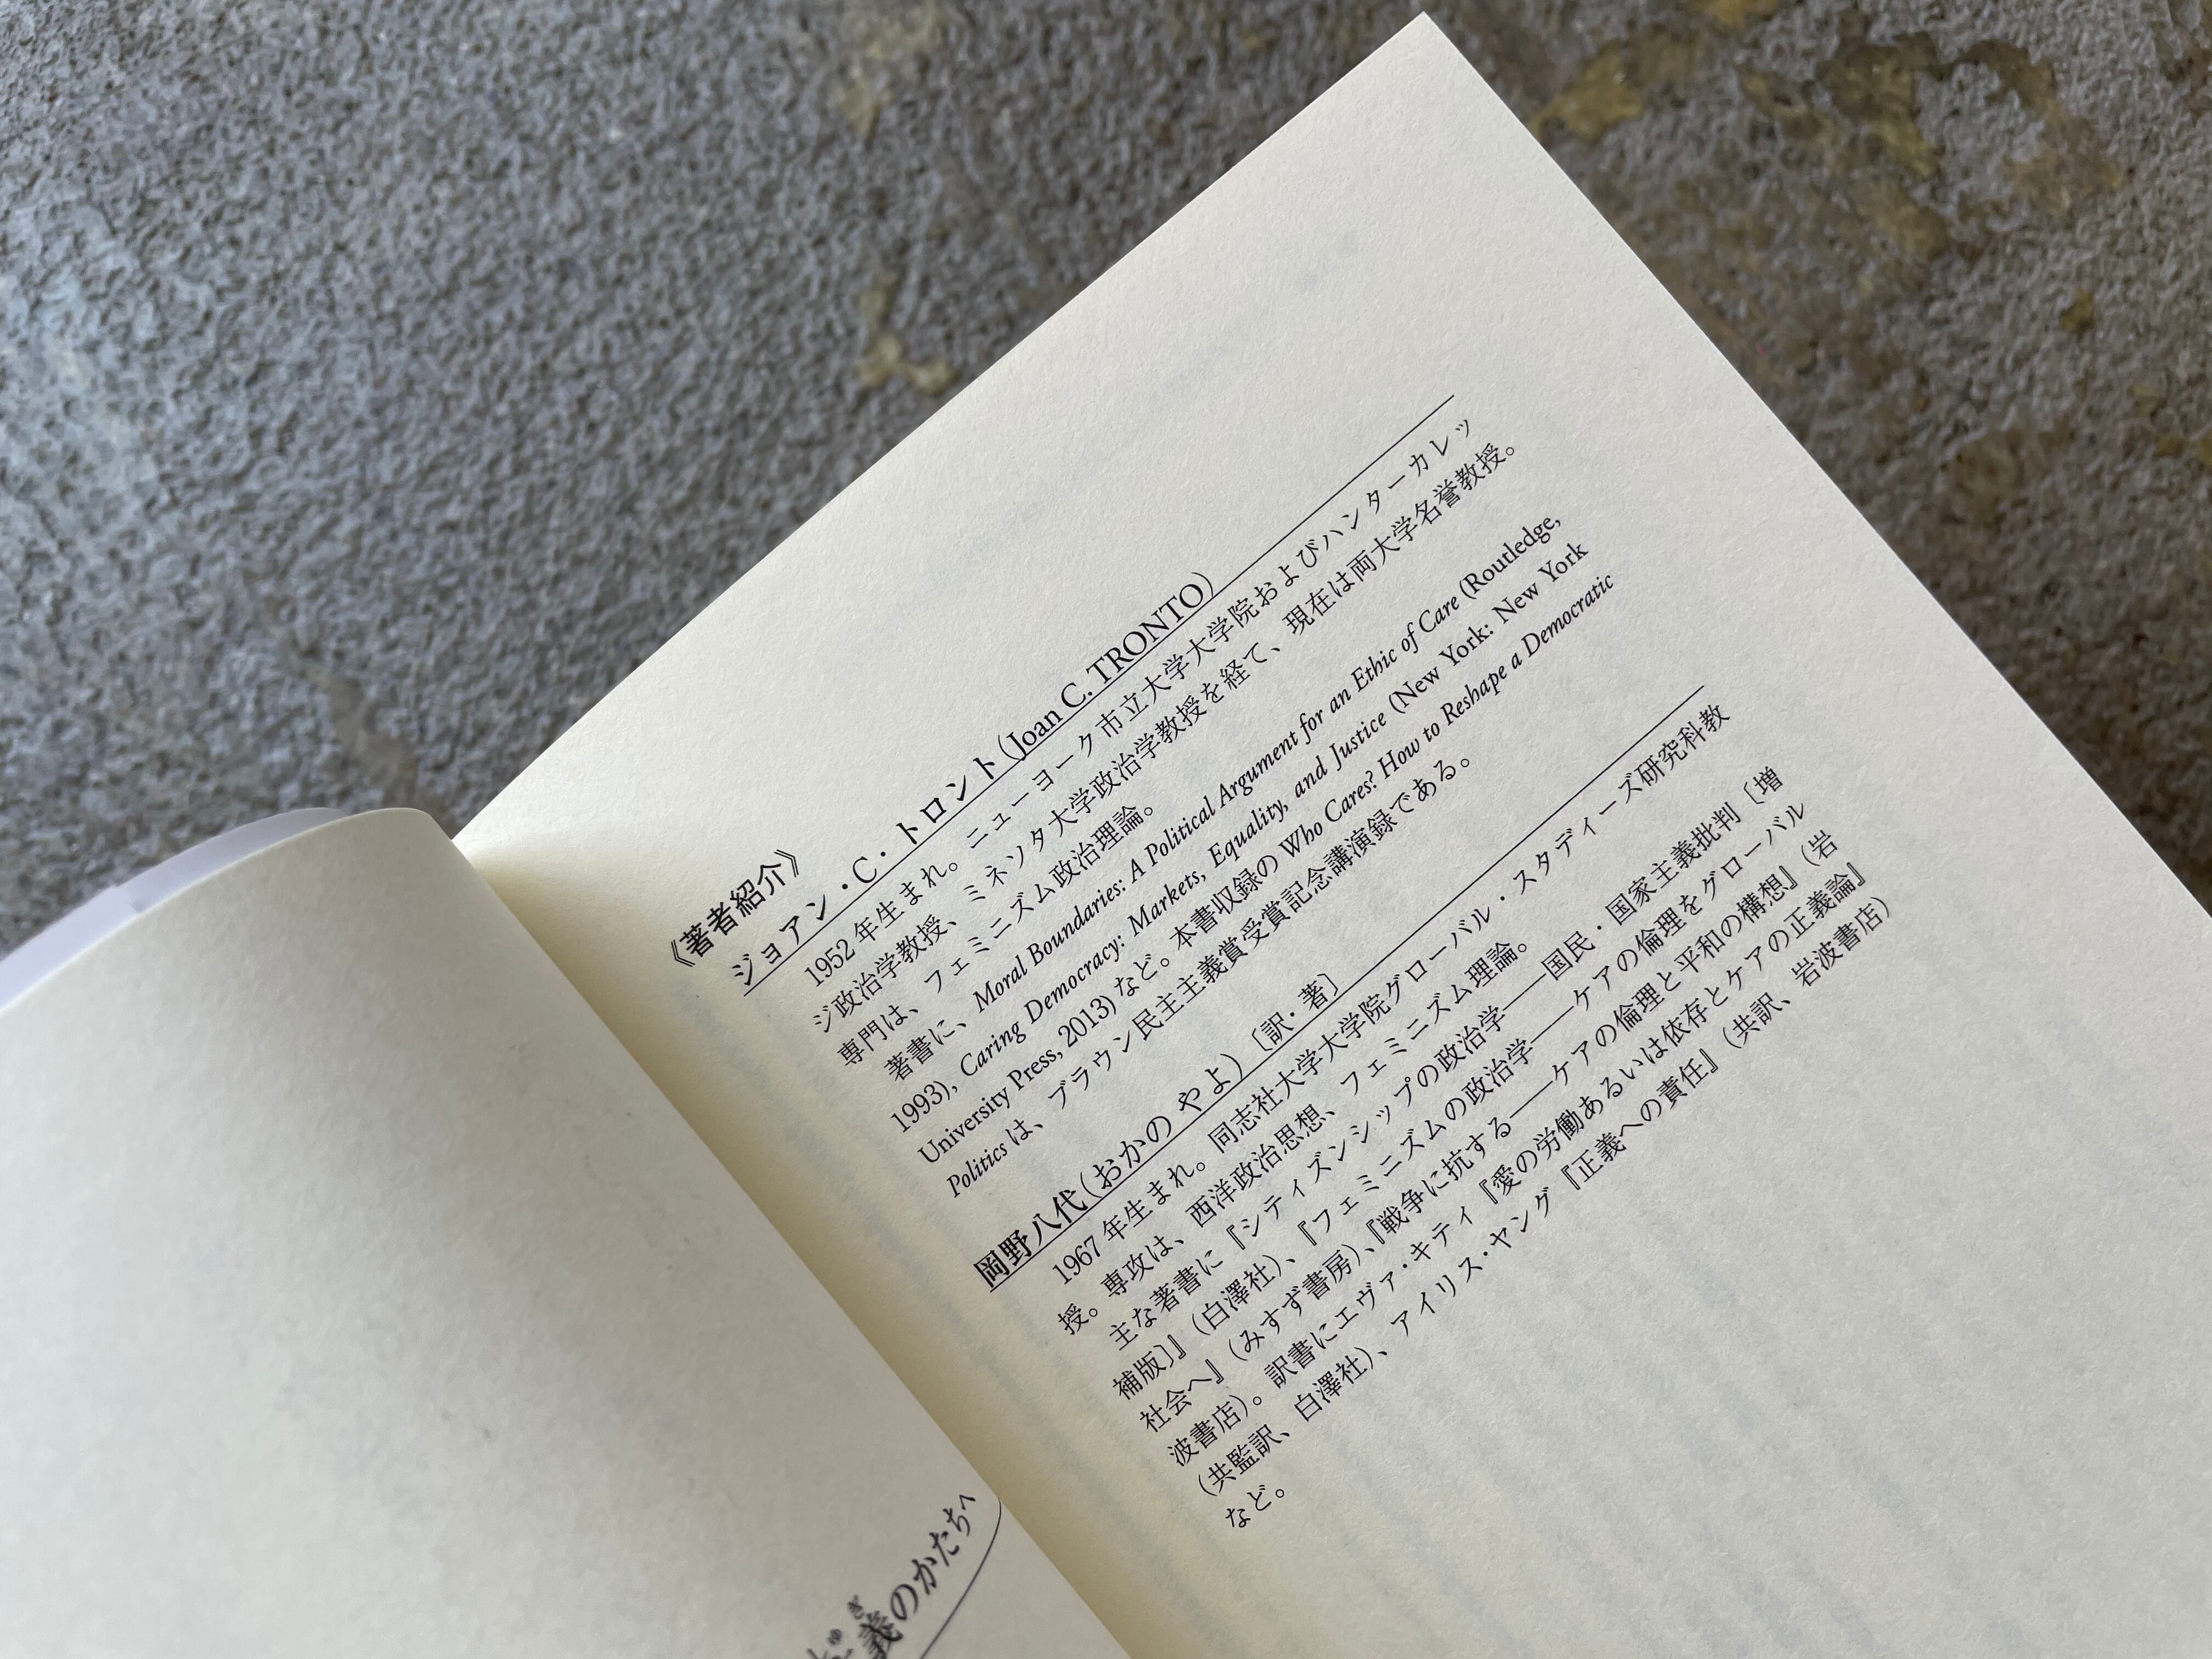 《著者紹介》
ジョアン・C・トロント(Joan C. TRONTO)
1952年生まれ。ニューヨーク市立大学大学院およびハンターカレッ
ジ政治学教授、ミネソタ大学政治学教授を経て、現在は両大学名誉教授。
専門は、フェミニズム政治理論。
著書に、Moral Boundaries: A Political Argument for an Ethic of Care (Routledge,
1993), Caring Democracy: Markets, Equality, and Justice (New York: New York
University Press, 2013) など。本書収録の Who Cares? How to Reshape a Democratic
Politics は、ブラウン民主主義賞受賞記念講演録である。
岡野八代(おかの やよ)〔訳・著〕
1967年生まれ。同志社大学大学院グローバル・スタディーズ研究科教
授。専攻は、西洋政治思想、フェミニズム理論。
主な著書に『シティズンシップの政治学――国民・国家主義批判〔増
補版〕』(白澤社)、『フェミニズムの政治学――ケアの倫理をグローバル
社会へ』(みすず書房)、『戦争に抗する――ケアの倫理と平和の構想』(岩
波書店)。訳書にエヴァ・キテイ『愛の労働あるいは依存とケアの正義論』
(共監訳、白澤社)、アイリス・ヤング『正義への責任』(共訳、岩波書店)
など。
義のかたちへ